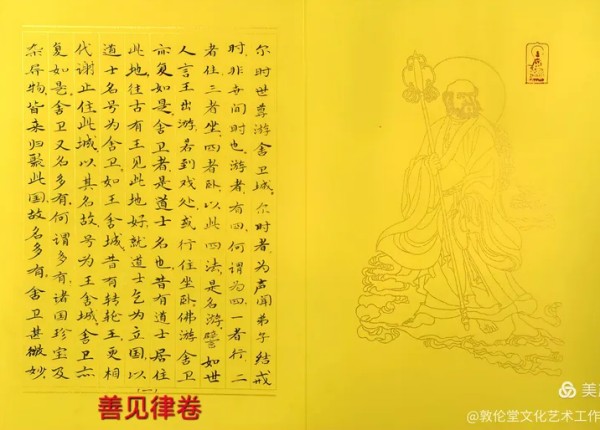 尔时世尊游舍卫城。尔时者，为声闻弟子结戒
时，非世间时也。游者有四，何谓为四，一者行，二
者住，三者坐，四者卧，以此四法是名游。譬如世
人言王出游，若到戏处，或行住坐卧，佛游舍卫
亦复如是。舍卫者，是道士名也。昔有道士居住
此地，往古有王见此地好，就道士乞为立国，以
道士名号为舍卫。如王舍城，昔有转轮王，更相
代谢止住此城，以其名故，号为王舍城。舍卫亦
复如是。舍卫又名多有。何谓多有，诸国珍宝及
杂异物，皆来归此国，故名多有。舍卫甚微妙，
(一)
善见律卷
美
@敦伦堂文化艺术工作